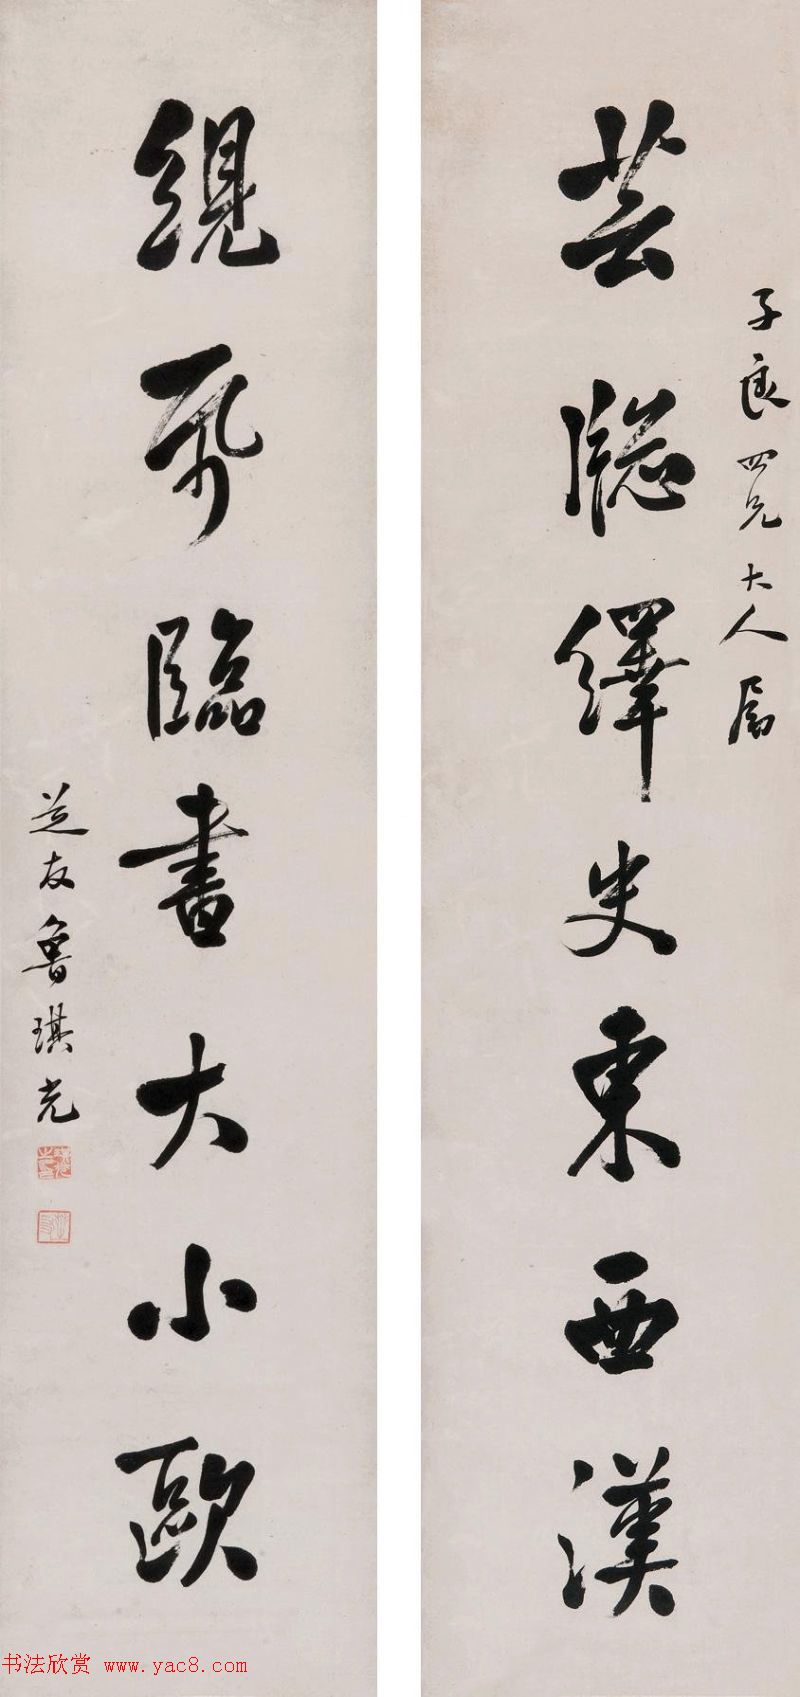 子良四兄大人属
芸牕繹史東西漢
硯几臨書大小歐
芝友魯琪光
书法欣赏 www.yac8.com